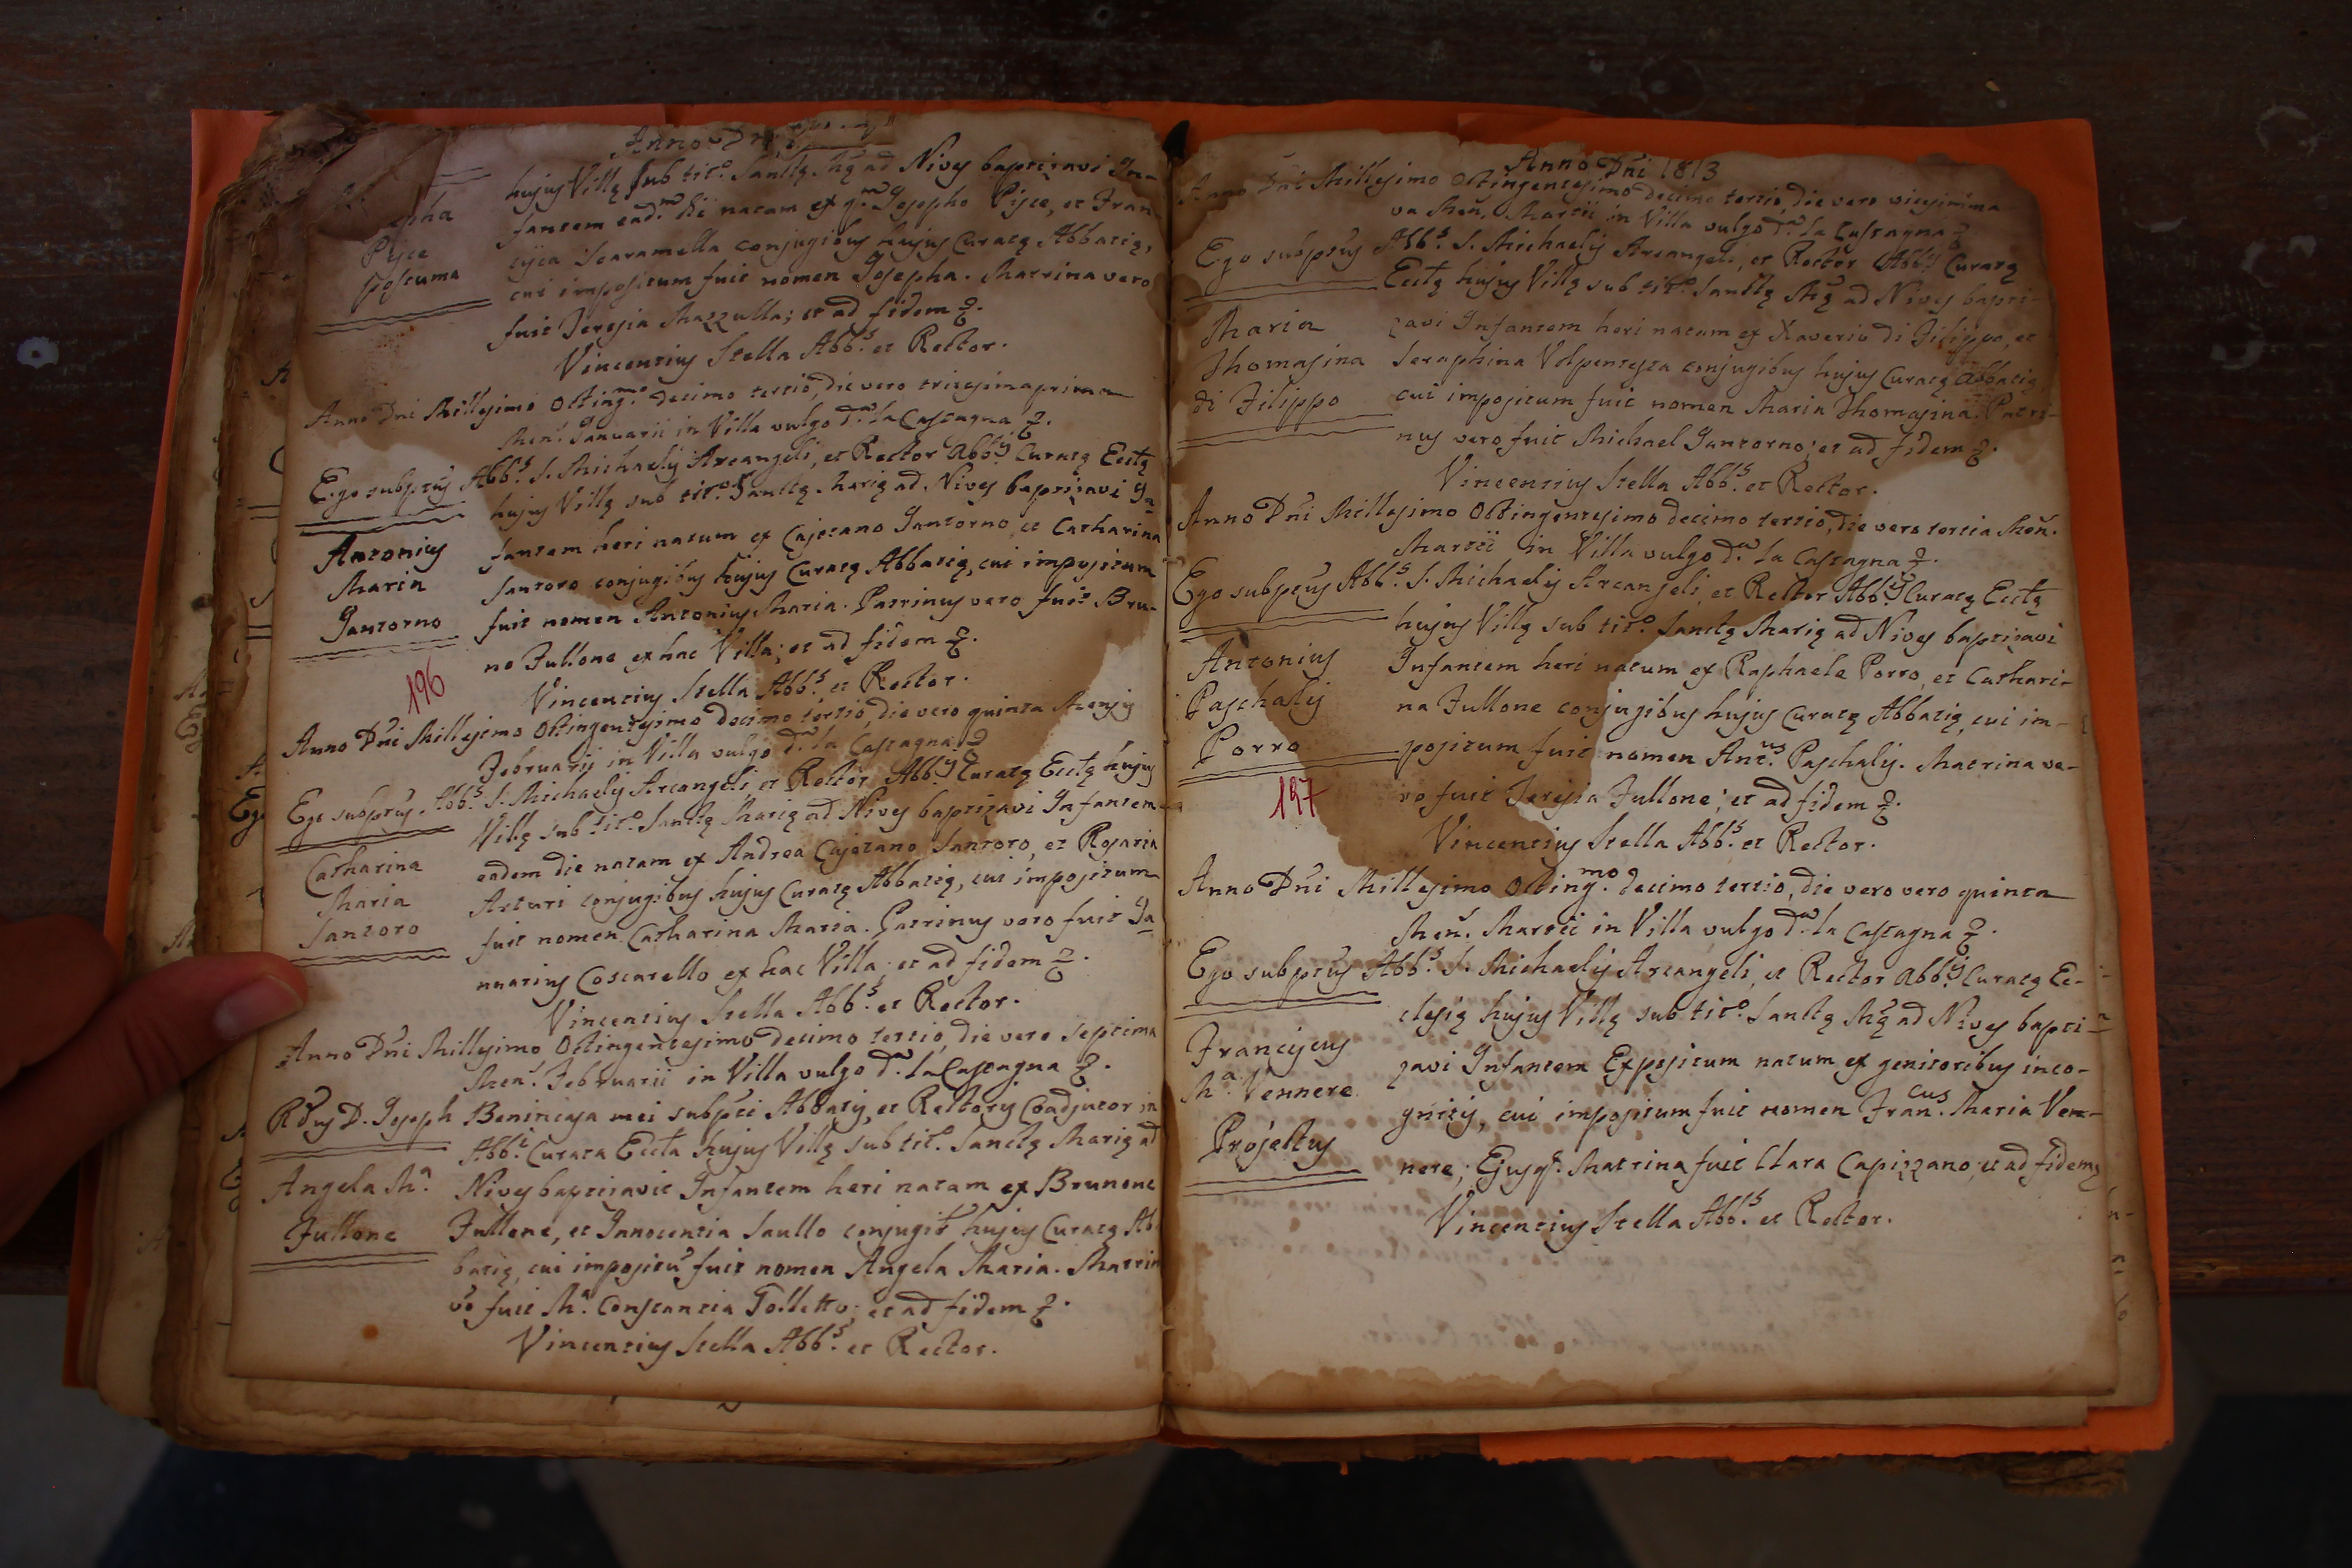 Anno Dñi
hujus Villę sub tit.º Sanctę Mę ad Nives baptizavi In-
fantem ead.m die natam ex q.m Josepho Pisce, et Fran-
cisca Scaramella conjugibus hujus Curatę Abbatię,
cui impositum fuit nomen Josepha. Matrina vero
fuit Teresia Mazzulla; et ad fidem &.
Pisce
postuma
Vincentius Stella Abb.s et Rector.
Anno Dñi Millesimo Octing.mo decimo tertio, die vero tricesimaprima
Men.s Januarii in Villa vulgo d.a la Castagna &.
Ego subptus Abb.s S. Michaelis Arcangeli, et Rector Abb.s Curatę Ecctę
hujus Villę sub tit.º Sanctę Marię ad Nives baptizavi In
Antonius
Maria
Jantorno
fantem heri natum ex Cajetano Jantorno, et Catharina
Santoro conjugibus hujus Curatę Abbatię, cui impositum
fuit nomen Antonius Maria. Patrinus vero fuit Bru-
no Fullone ex hac Villa; et ad fidem &.
196
Vincentius Stella Abb.s et Rector.
Anno Dñi Millesimo Octingentesimo decimo tertio, die vero quinta Mensis
Februarii in Villa vulgo d.a la Castagna &
Ego subptus Abb.s S. Michaelis Arcangeli, et Rector Abb.s Curatę Ecctę hujus
Villę sub tit.º Sanctę Marię ad Nives baptizavi Infantem
Catharina
Maria
Santoro
eadem die natam ex Andrea Cajetano Santoro, et Rosaria
Arturi conjugibus hujus Curatę Abbatię, cui impositum
fuit nomen Catharina Maria. Patrinus vero fuit Ja
nuarius Coscarello ex hac Villa; et ad fidem &.
Vincentius Stella Abb.s et Rector.
Anno Dñi Millesimo Octingentesimo decimo tertio, die vero septima
Men.s Februarii in Villa vulgo d.a la Castagna &.
Rdus D. Joseph Benincasa mei subpti Abbatis, et Rectoris Coadjutor in
Abb.i Curata Eccta hujus Villę sub tit.º Sanctę Marię ad
Angela M.a
Fullone
Nives baptizavit Infantem heri natam ex Brunone
Fullone, et Innocentia Saullo conjugib hujus Curatę Ab
batię, cui impositũ fuit nomen Angela Maria. Matrin
vo fuit M.a Constantia Tolletto; et ad fidem &.
Vincentius Stella Abb.s et Rector.
Anno Dñi 1813
Anno Dñi Millesimo Octingentesimo decimo tertio, die vero vicesima
va Men. Martii in Villa vulgo d.a la Castagna &
Ego subptus Abb.s S. Michaelis Arcangeli, et Rector Abb.s Curatę
Ecctę hujus Villę sub tit.º Sanctę Mę ad Nives bapti-
Maria
Thomasina
di Filippo
zavi Infantem heri natum ex Xaverio di Filippo, et
Seraphina Volpentesta conjugibus hujus Curatę Abbatię
cui impositum fuit nomen Maria Thomasina. Patri-
nus vero fuit Michael Jantorno; et ad fidem &.
Vincentius Stella Abb.s et Rector.
Anno Dñi Millesimo Octingentesimo decimo tertio, die vero tertia Men.
Martii in Villa vulgo d.a la Castagna &.
Ego subptus Abb.s S. Michaelis Arcangeli, et Rector Abb.s Curatę Ecctę
hujus Villę sub tit.º Sanctę Marię ad Nives baptizavi
Antonius
Paschalis
Porro
Infantem heri natum ex Raphaele Porro, et Cathari-
na Fullone conjugibus hujus Curatę Abbatię, cui im-
positum fuit nomen Ant.us Paschalis. Matrina ve-
ro fuit Teresia Fullone; et ad fidem &.
197
Vincentius Stella Abb.s et Rector.
Anno Dñi Millesimo Octing.mo decimo tertio, die vero vero quinta
Men.s Martii in Villa vulgo d.a la Castagna &.
Ego subptus Abb.s S. Michaelis Arcangeli, et Rector Abb.s Curatę Ec-
clesię hujus Villę sub tit.º Sanctę Mę ad Nives bapti-
Franciscus
M.a Vennere
Projectus
zavi Infantem Expositum natum ex genitoribus inco-
gnitis, cui impositum fuit nomen Fran.cus Maria Ven-
nere; Ejusq. Matrina fuit Clara Capizzano; et ad fidem &
Vincentius Stella Abb.s et Rector.